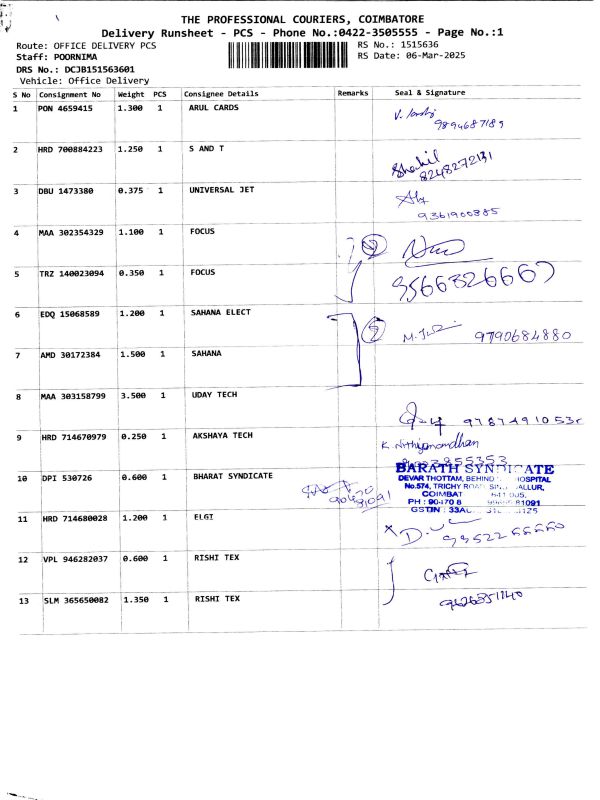 THE PROFESSIONAL COURIERS, COIMBATORE
Delivery Runsheet - PCS - Phone No.:0422-3505555 - Page No.:1
Route: OFFICE DELIVERY PCS
RS No.: 1515636
Staff: POORNIMA
RS Date: 06-Mar-2025
DRS No.: DCJB151563601
Vehicle: Office Delivery
S No Consignment No Weight PCS Consignee Details Remarks Seal & Signature
1 PON 4659415 1.300 1 ARUL CARDS
9894687189
2 HRD 700884223 1.250 1 S AND T
Shakil
8248272131
3 DBU 1473380 0.375 1 UNIVERSAL JET
9361900885
4 MAA 302354329 1.100 1 FOCUS
5 TRZ 140023094 0.350 1 FOCUS
9566326667
6 EDQ 15068589 1.200 1 SAHANA ELECT
9790684880
7 AMD 30172384 1.500 1 SAHANA
8 MAA 303158799 3.500 1 UDAY TECH
9 HRD 714670979 0.250 1 AKSHAYA TECH
K. Nithyanandhan
10 DPI 530726 0.600 1 BHARAT SYNDICATE
BARATH SYNDICATE
DEVAR THOTTAM, BEHIND HOSPITAL
No.574, TRICHY ROAD
COIMBAT
11 HRD 714680028 1.200 1 ELGI
12 VPL 946282037 0.600 1 RISHI TEX
13 SLM 365650082 1.350 1 RISHI TEX